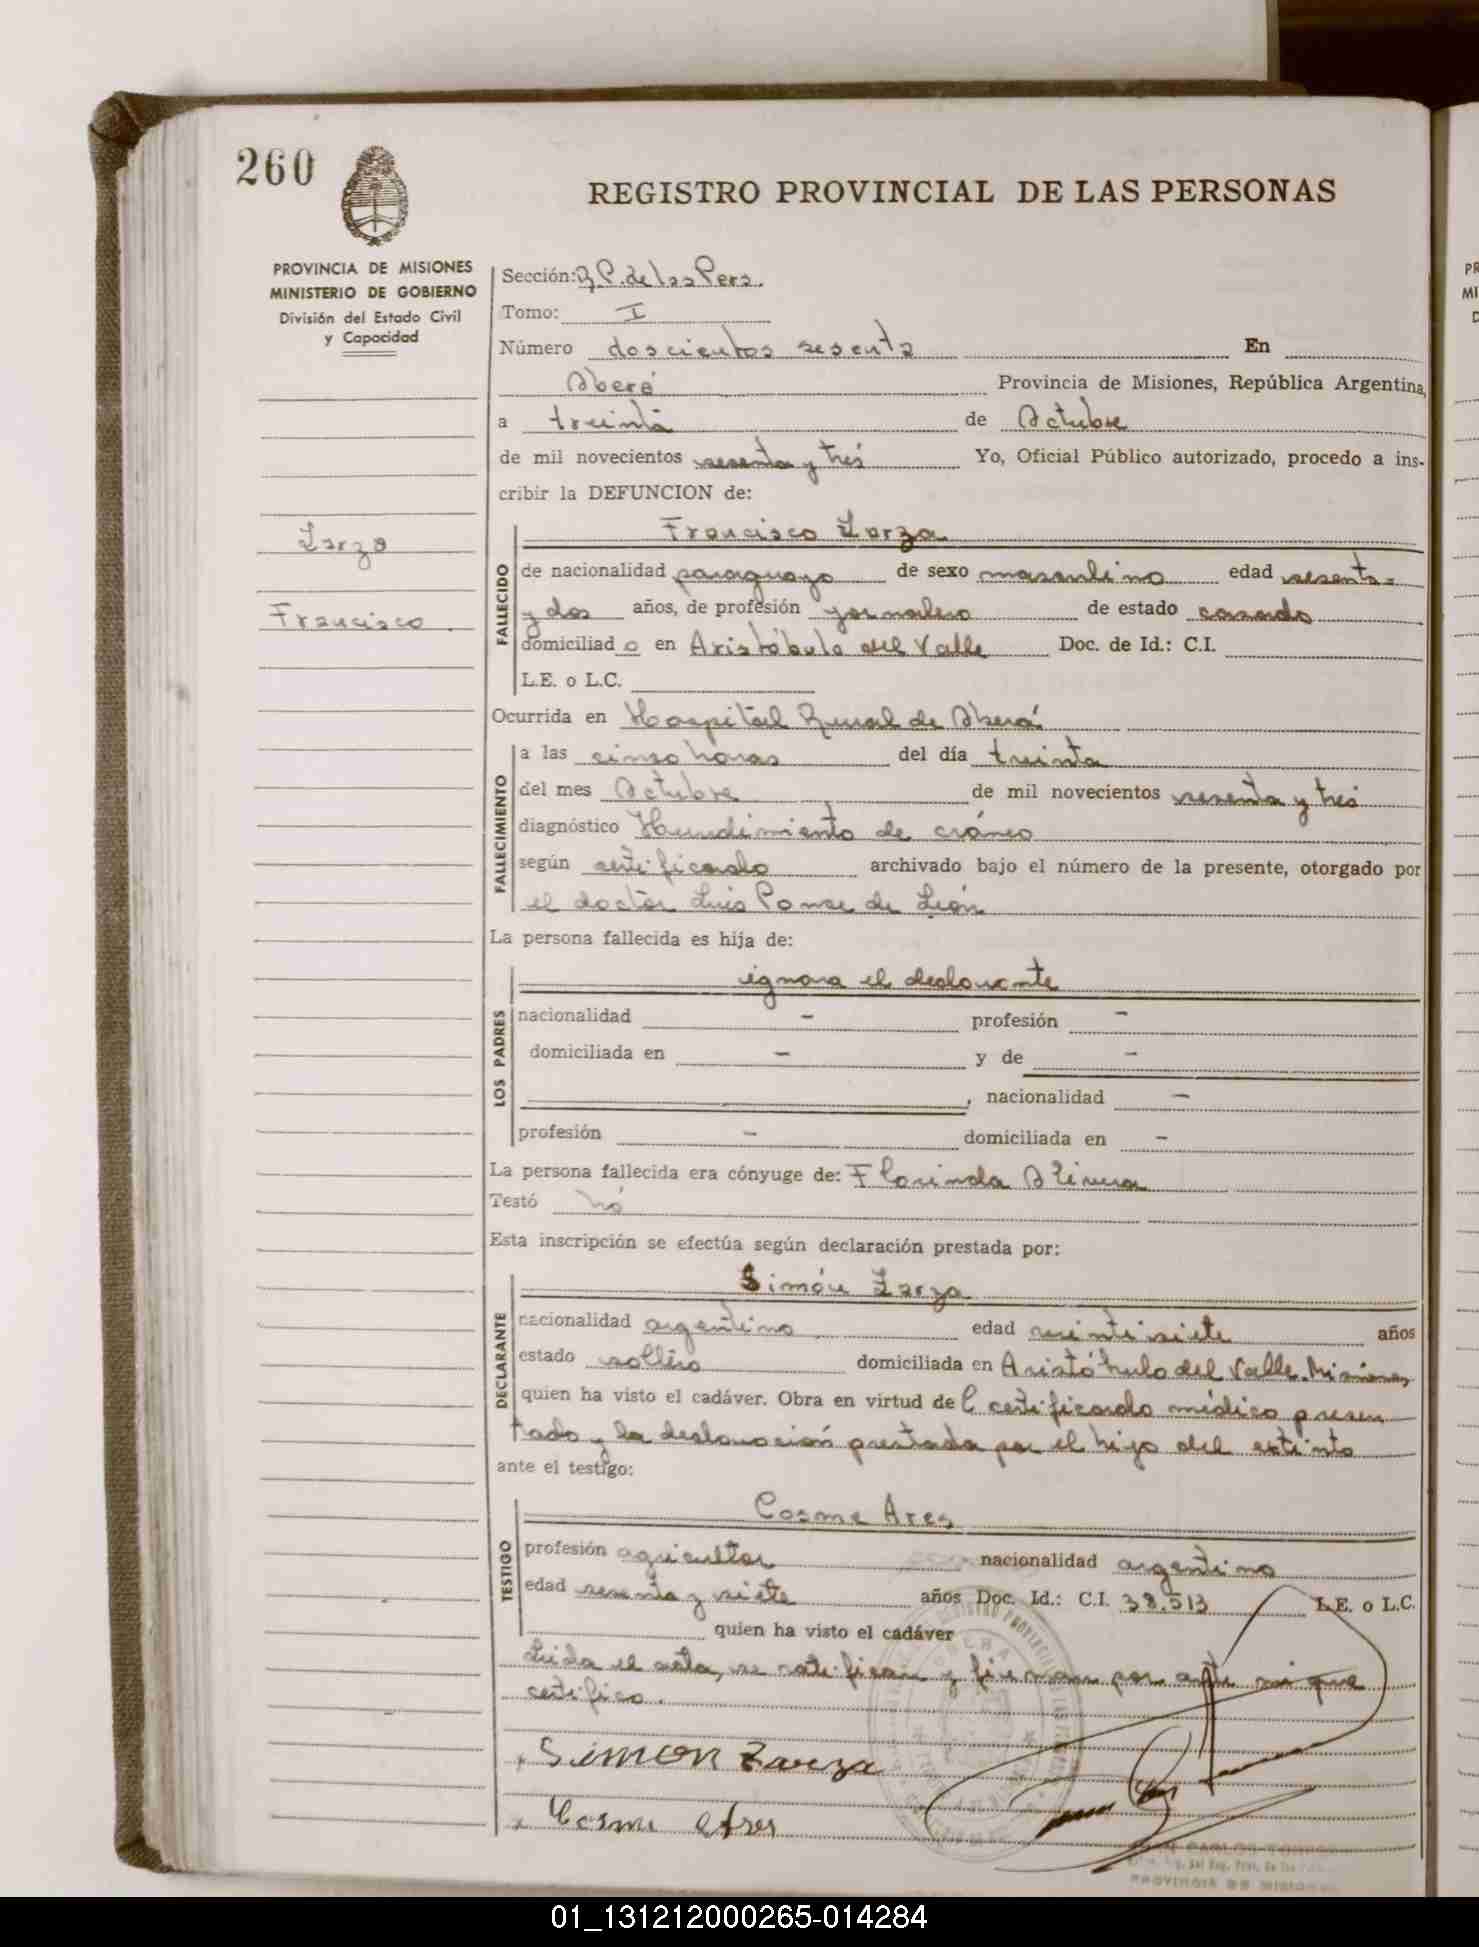 260
REGISTRO PROVINCIAL DE LAS PERSONAS
PROVINCIA DE MISIONES
MINISTERIO DE GOBIERNO
División del Estado Civil
y Capacidad
Sección: R.P. de las Pers.
Tomo: I
Número doscientos sesenta En
Oberá Provincia de Misiones, República Argentina,
a treinta de Octubre
de mil novecientos sesenta y tres Yo, Oficial Público autorizado, procedo a ins-
cribir la DEFUNCION de:
Zarza
Francisco
FALLECIDO
Francisco Zarza
de nacionalidad paraguayo de sexo masculino edad sesenta
y dos años, de profesión jornalero de estado casado
domiciliad o en Aristóbulo del Valle Doc. de Id.: C.I.
L.E. o L.C.
Ocurrida en Hospital Rural de Oberá
FALLECIMIENTO
a las cinco horas del día treinta
del mes Octubre de mil novecientos sesenta y tres
diagnóstico Hundimiento de cráneo
según certificado archivado bajo el número de la presente, otorgado por
el doctor Luis Ponse de León
La persona fallecida es hija de:
LOS PADRES
ignora el declarante
nacionalidad - profesión -
domiciliada en - y de -
, nacionalidad -
profesión - domiciliada en -
La persona fallecida era cónyuge de: Florinda Olivera
Testó nó
Esta inscripción se efectúa según declaración prestada por:
DECLARANTE
Simón Zarza
nacionalidad argentino edad veintisiete años
estado soltero domiciliada en Aristóbulo del Valle. Misiones
quien ha visto el cadáver. Obra en virtud de l certificado médico presen
tado y la declaración prestada por el hijo del extinto
ante el testigo:
TESTIGO
Cosme Ares
profesión agricultor nacionalidad argentino
edad sesenta y siete años Doc. Id.: C.I. 38.513 L.E. o L.C.
quien ha visto el cadáver
Leida el acta, se ratifican y firman por ante mi que
certifico.
Simon Zarza
Cosme Ares
PROVINCIA DE MISIONES
01_131212000265-014284